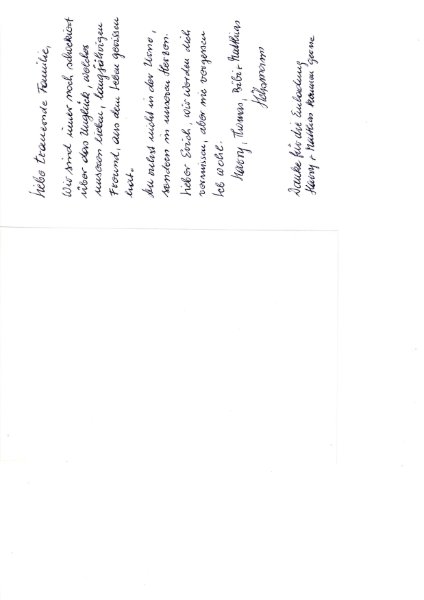 Liebe trauernde Familie,
Wir sind immer noch schockiert
über das Unglück, welches
unseren lieben, langjährigen
Freund, aus dem Leben gerissen
hat.
Du ruhst nicht in der Urne,
sondern in unseren Herzen.
Lieber Erich, wir werden dich
vermissen, aber nie vergessen
Leb wohl.
Harry, Thomas, Bibi + Matthias
Danke für die Einladung
Harry + Matthias kommen gerne